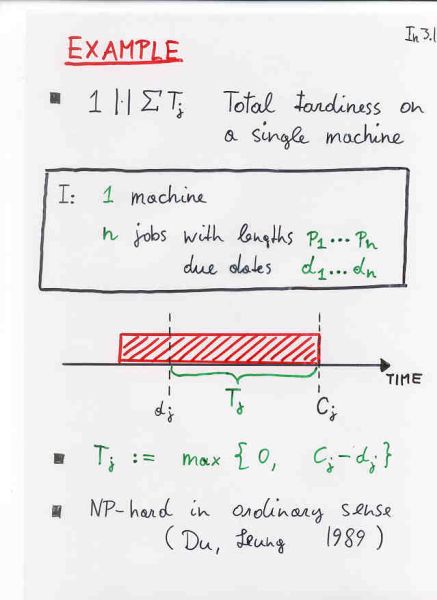 In 3.1
EXAMPLE
▪ 1 |·| ΣTj Total tardiness on
a single machine
I: 1 machine
n jobs with lengths p1...pn
due dates d1...dn
TIME
dj Tj Cj
▪ Tj := max {0, Cj-dj}
▪ NP-hard in ordinary sense
(Du, Leung 1989)